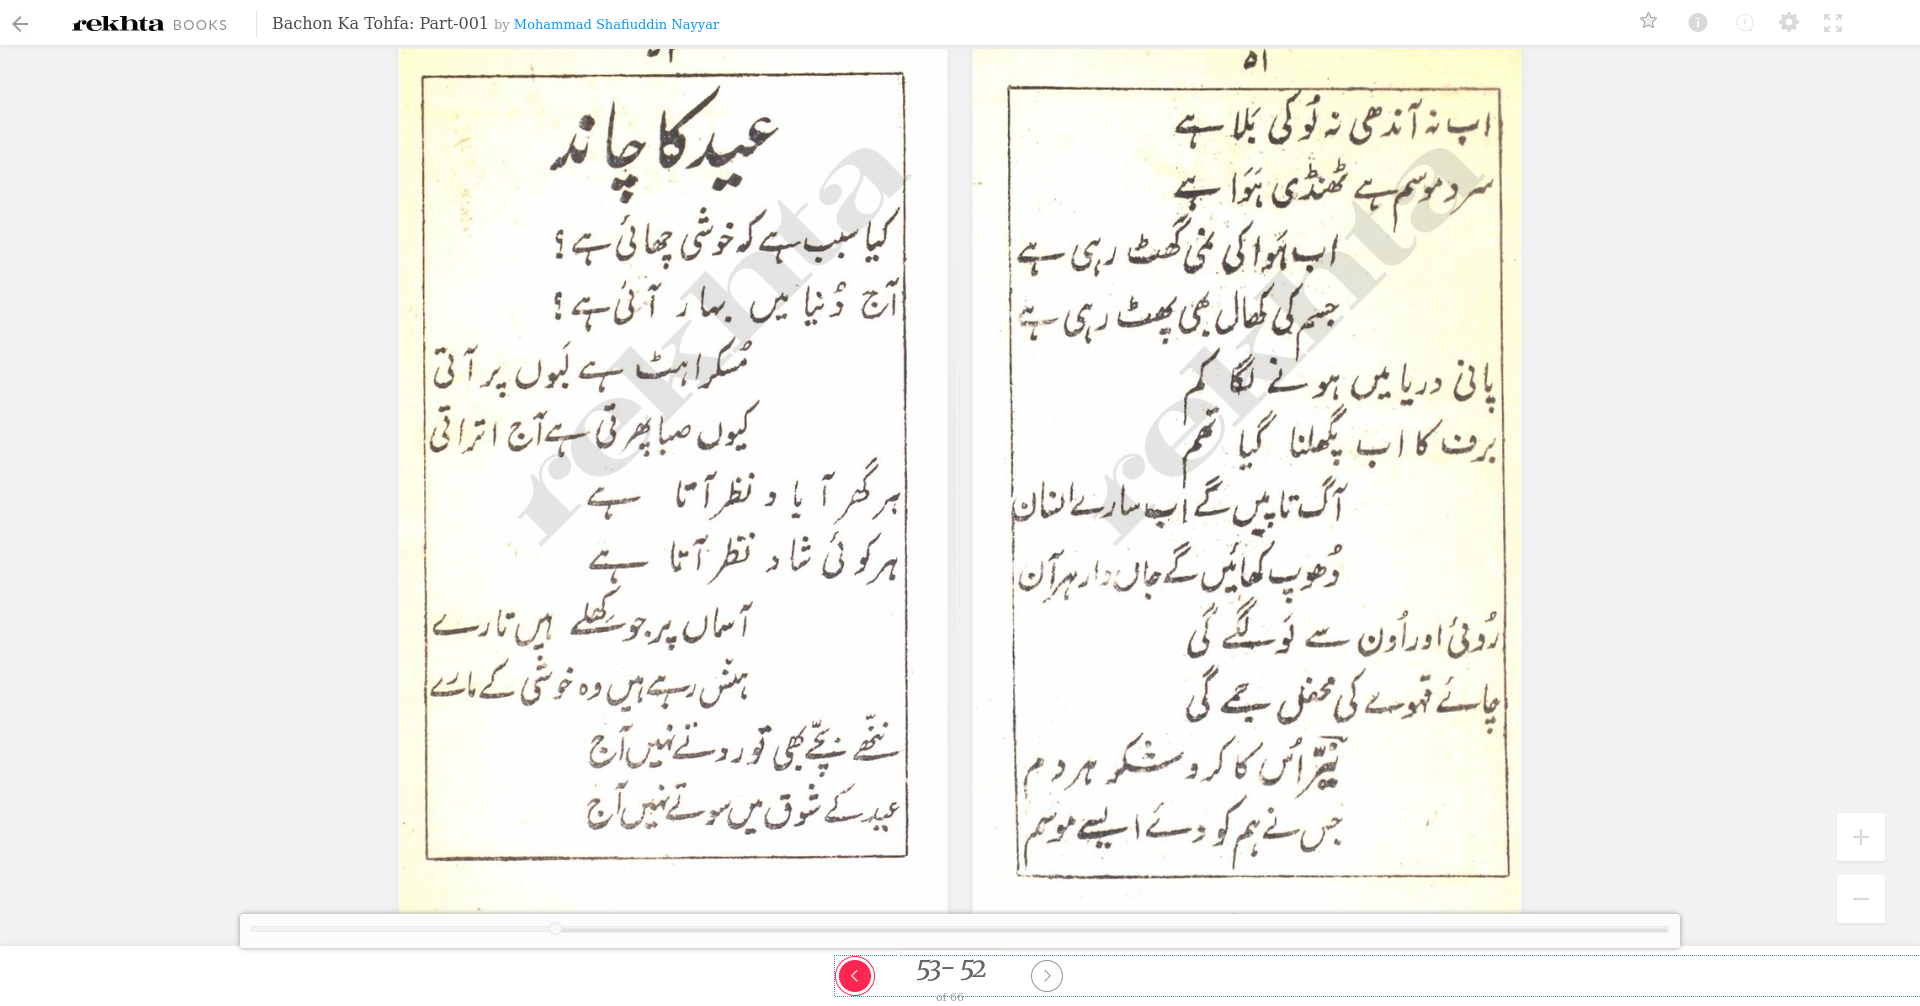 rekhta BOOKS Bachon Ka Tohfa: Part-001 by Mohammad Shafiuddin Nayyar
۵۱
اب نہ آندھی نہ لُو کی بَلا ہے
سرد موسم ہے ٹھنڈی ہَوَا ہے
اب ہَوَا کی نمی گھٹ رہی ہے
جسم کی کھال بھی پھٹ رہی ہے
پانی دریا میں ہونے لگا کم
برف کا اب پگھلنا گیا تھم
آگ تاپیں گے اب سارے انسان
دُھوپ کھائیں گے جاں دار ہر آن
رُوئی اور اُون سے لَو لگے گی
چائے قہوے کی محفل جمے گی
نیّرؔ اُس کا کرو شکر ہر دم
جس نے ہم کو دئے ایسے موسم
rekhta
عید کا چاند
کیا سبب ہے کہ خوشی چھائی ہے ؟
آج دُنیا میں بہار آئی ہے ؟
مُسکراہٹ ہے لَبوں پر آتی
کیوں صبا پھرتی ہے آج اتراتی
ہر گھر آباد نظر آتا ہے
ہر کوئی شاد نظر آتا ہے
آسماں پر جو کِھلے ہیں تارے
ہنس رہے ہیں وہ خوشی کے مارے
ننّھے بچّے بھی تو روتے نہیں آج
عید کے شوق میں سوتے نہیں آج
rekhta
53- 52
of 66